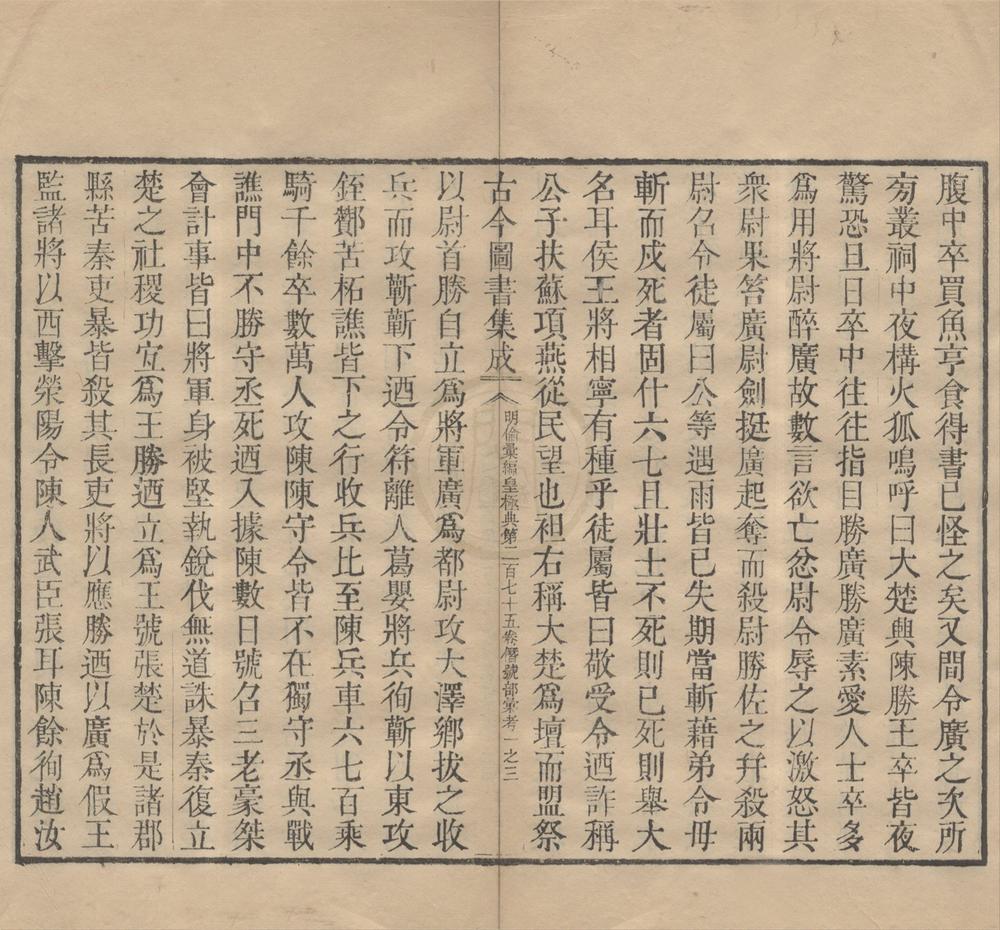 腹中卒買魚亨食得書已怪之矣又間令廣之次所
旁叢祠中夜構火狐鳴呼曰大楚興陳勝王卒皆夜
驚恐旦日卒中往往指目勝廣勝廣素愛人士卒多
爲用將尉醉廣故數言欲亡忿尉令辱之以激怒其
衆尉果笞廣尉劍挺廣起奪而殺尉勝佐之幷殺兩
尉名令徒屬曰公等遇雨皆已失期當斬藉弟令毋
斬而戍死者固什六七且壯士不死則已死則舉大
名耳侯王將相寧有種乎徒屬皆曰敬受令迺詐稱
公子扶蘇項燕從民望也袒右稱大楚爲壇而盟祭
古今圖書集成 明倫彙編皇極典第二百七十五卷僭號部彙考一之三
以尉首勝自立爲將軍廣爲都尉攻大澤鄉拔之收
兵而攻蘄蘄下迺令符離人葛嬰將兵徇蘄以東攻
銍酇苦柘譙皆下之行收兵比至陳兵車六七百乘
騎千餘卒數萬人攻陳陳守令皆不在獨守丞與戰
譙門中不勝守丞死迺入據陳數日號召三老豪桀
會計事皆曰將軍身被堅執銳伐無道誅暴秦復立
楚之社稷功宜爲王勝迺立爲王號張楚於是諸郡
縣苦秦吏暴皆殺其長吏將以應勝迺以廣爲假王
監諸將以西擊滎陽令陳人武臣張耳陳餘徇趙汝